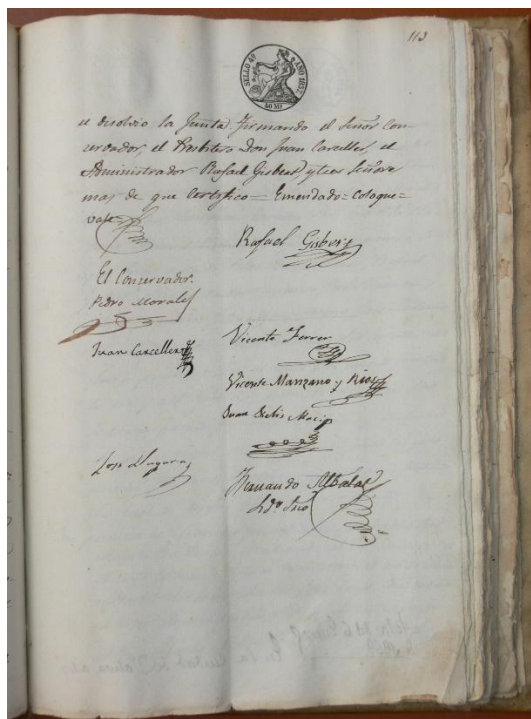 113
SELLO 4º AÑO 1857
40 MRS
se disolvio la Junta firmando el Señor Con
servador, el Presbitero Don Juan Carceller, el
Administrador Rafael Gisbert y tres Señores
mas de que Certifico = Emendado = Coloque =
vale =
Rafael Gisbert
El Conservador.
Pedro Morales
Juan Carceller
Vicente Ferrer
Vicente Manzano y Rios
Juan Macip
Jose
Fernando Albalat
Srio